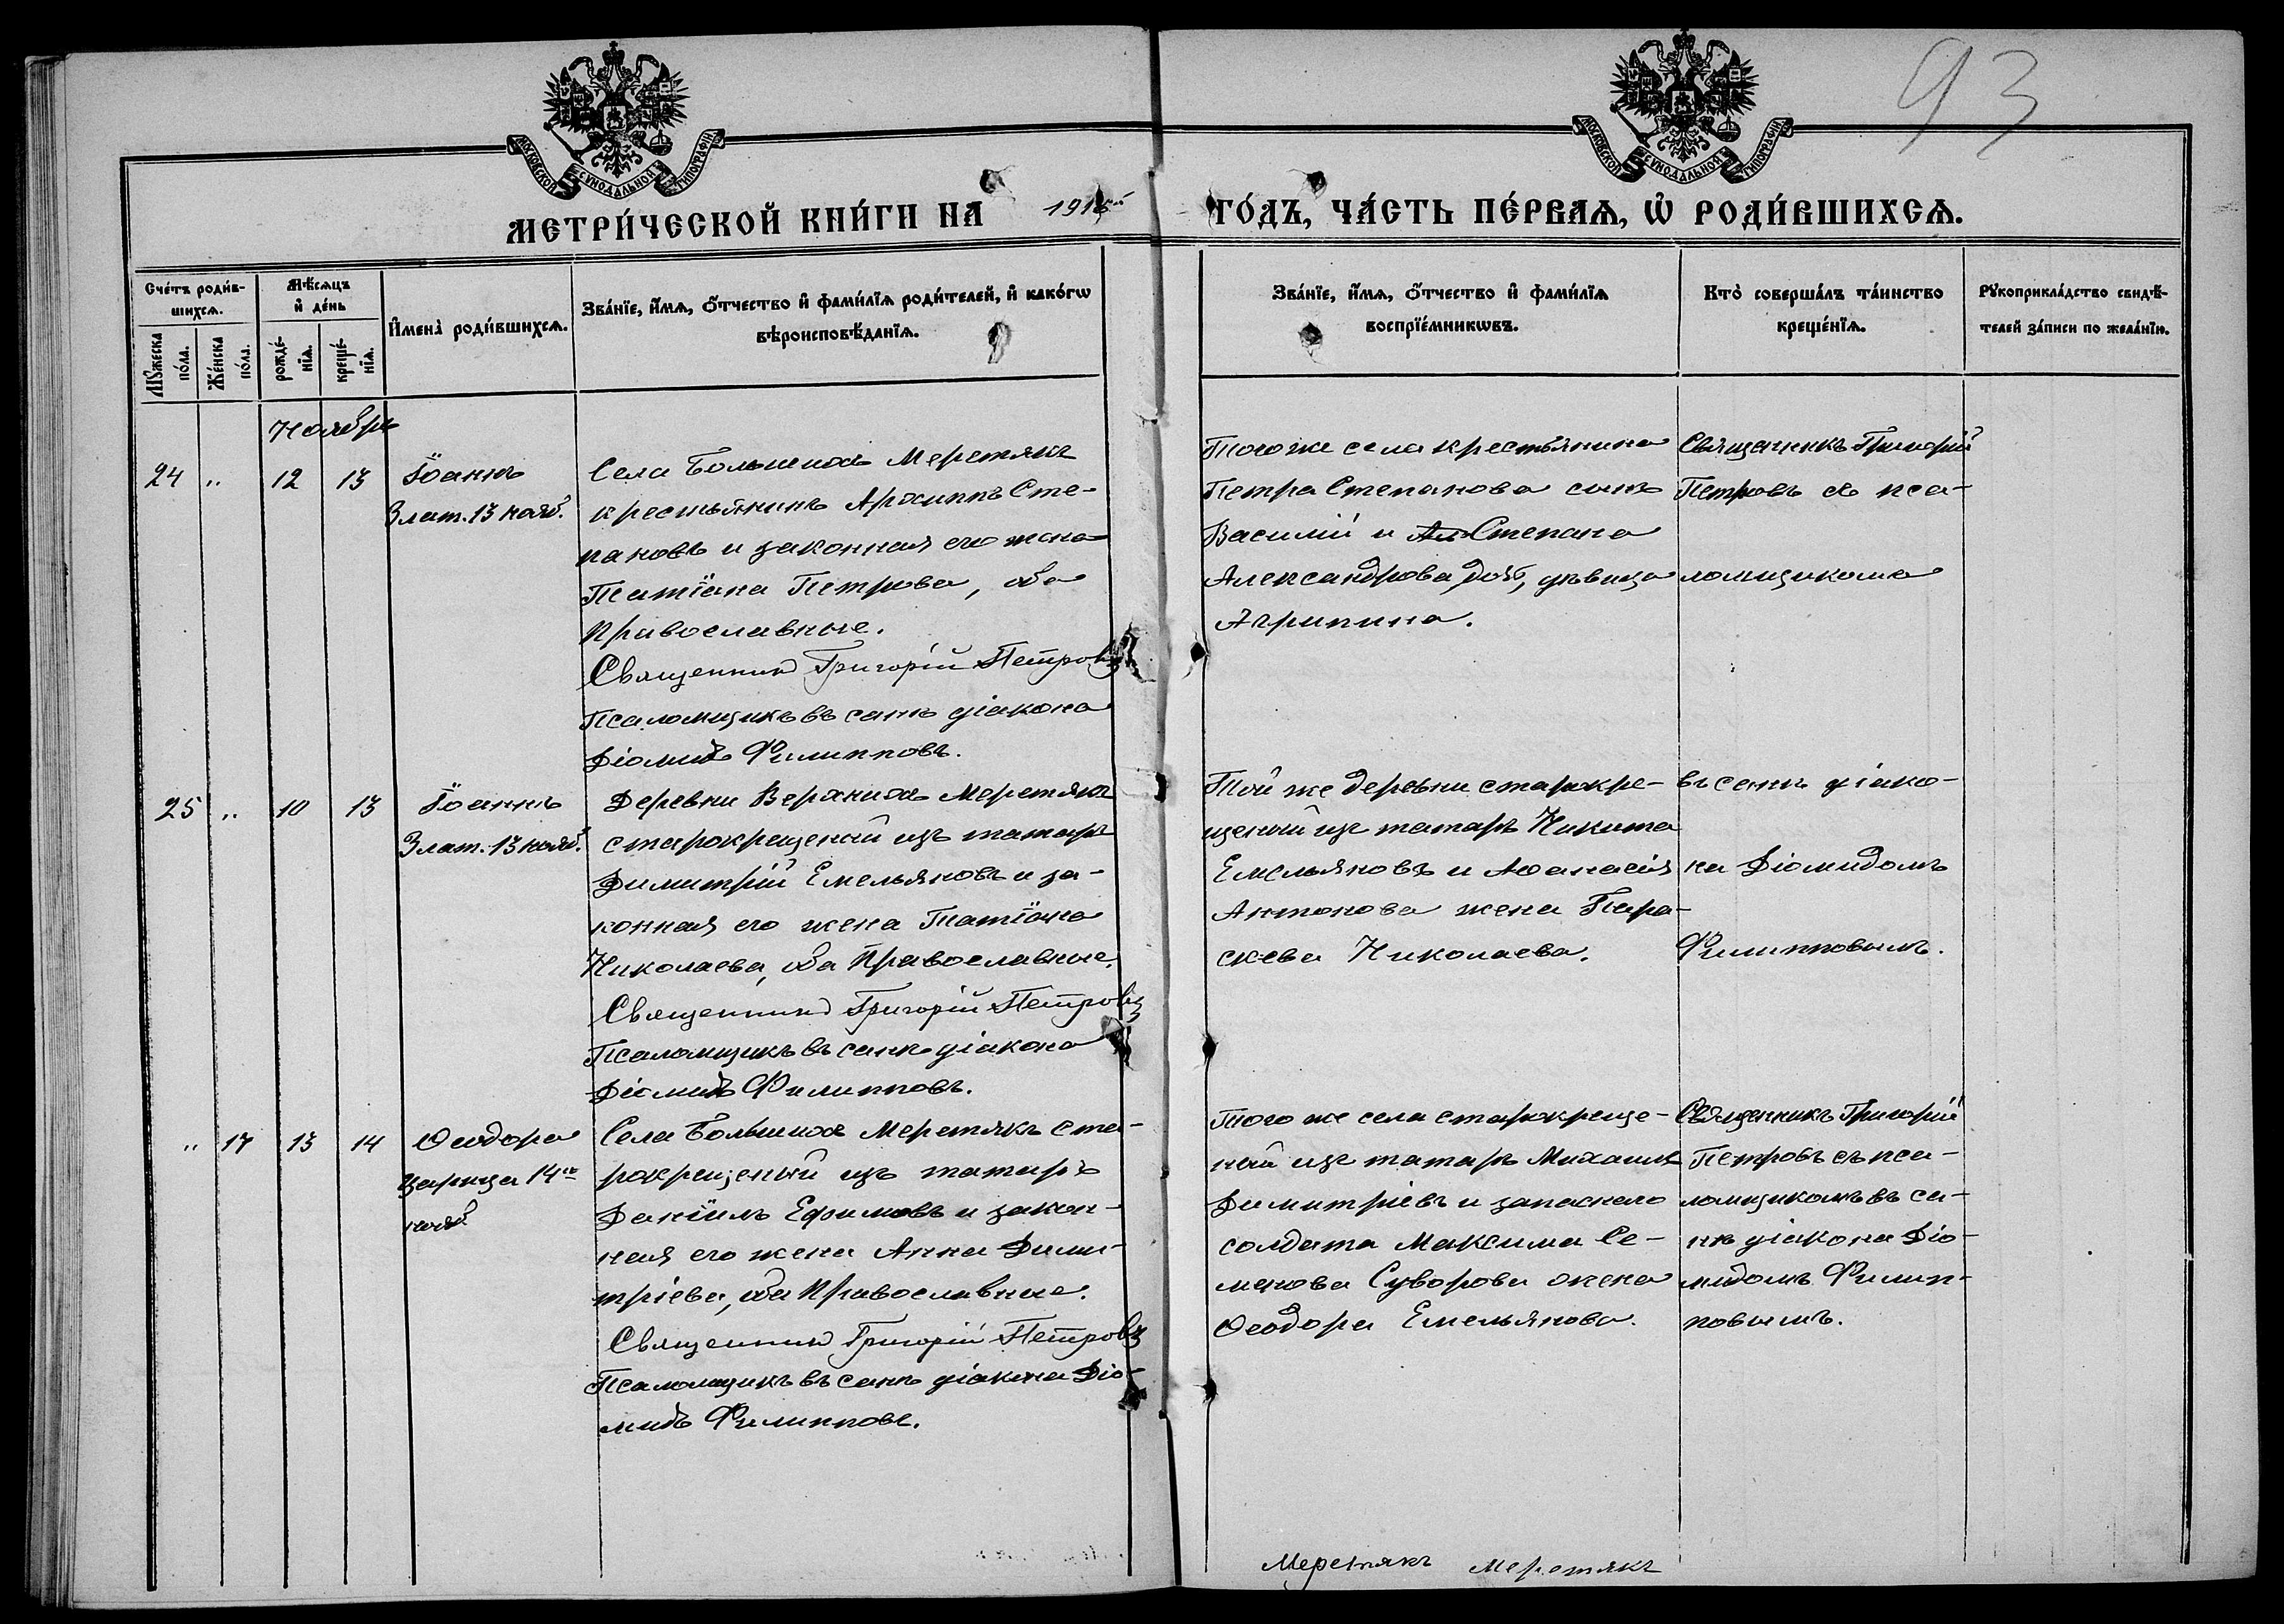 93
МОСКОВСКОЙ СѴНОДАЛЬНОЙ ТИПОГРАФІИ
МОСКОВСКОЙ СѴНОДАЛЬНОЙ ТИПОГРАФІИ
МЕТРИ́ЧЕСКОЙ КНИ́ГИ НА 1915й ГО́ДЪ, ЧА́СТЬ ПЕ́РВАѦ, Ѡ҆ РОДИ́ВШИХСѦ.
Сче́тъ роди́в-
шихсѧ.
Мꙋжеска по́ла.
Же́нска по́ла.
Мѣ́сѧцъ
и҆ де́нь
рожде́-
нїѧ.
креще́-
нїѧ.
И҆мена̀ роди́вшихсѧ.
Зва́нїе, и҆́мѧ, ѻ҆́тчество и҆ фами́лїѧ роди́телей, и҆ како́гѡ
вѣроисповѣ́данїѧ.
Зва́нїе, и҆́мѧ, ѻ҆́тчество и҆ фами́лїѧ
воспрїе́мникѡвъ.
Кто̀ соверша́лъ та́инство
креще́нїѧ.
Рꙋкоприкла́дство свидѣ́-
телей за́писи по жела́нїю.
Ноябрь
24 „ 12 13
Іоаннъ
Злат. 13 нояб.
Села Большихъ Меретякъ
крестьянинъ Архиппъ Сте-
пановъ и законная его жена
Татіана Петрова, оба
Православные.
Священникъ Григорій Петровъ
Псаломщикъ въ санѣ діакона
Діомидъ Филипповъ.
Того же села крестьянина
Петра Степанова сынъ
Василій и Ал Степана
Александрова доч, дѣвица
Агрипина.
Священникъ Григорій
Петровъ съ пса-
ломщикомъ
25 „ 10 13
Іоаннъ
Злат. 13 нояб.
Деревни Верхнихъ Меретякъ
старокрещеный изъ татаръ
Димитрій Емельяновъ и за-
конная его жена Татіана
Николаева, оба Православные.
Священникъ Григорій Петровъ
Псаломщикъ въ санѣ діакона
Діомидъ Филипповъ.
Той же деревни старокре-
щеный изъ татаръ Никита
Емельяновъ и Аѳанасія
Антонова жена Пара-
скева Николаева.
въ санѣ діако-
на Діомидомъ
Филипповымъ.
„ 17 13 14
Ѳеодора
царица 14го
нояб
Села Большихъ Меретякъ ста-
рокрещеный изъ татаръ
Даніилъ Ефимовъ и закон-
ная его жена Анна Дими-
тріева, оба Православные.
Священникъ Григорій Петровъ
Псаломщикъ въ санѣ діакона Діо-
мидъ Филипповъ.
Того же села старокреще-
ный изъ татаръ Михаилъ
Димитріевъ и запаснаго
солдата Максима Се-
менова Суворова жена
Ѳеодора Емельянова.
Священникъ Григорій
Петровъ съ пса-
ломщикомъ въ са-
нѣ діакона Діо-
мидомъ Филип-
повымъ.
Меретякъ Меретякъ